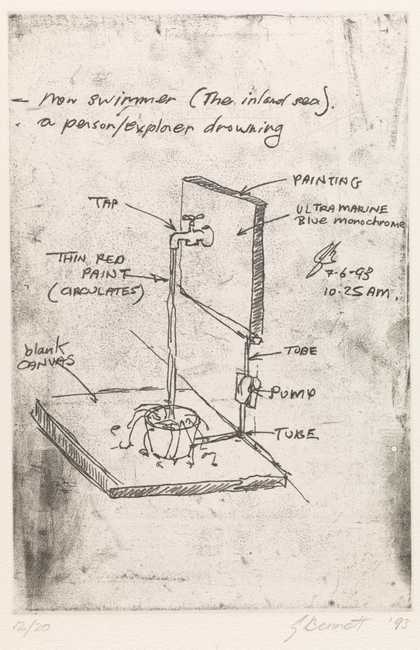 – non swimmer (The inland sea).
. a person/explorer drowning
PAINTING
TAP
ULTRAMARINE
Blue monochrome
THIN RED
PAINT
(CIRCULATES)
7-6-93
10.25 AM.
blank
CANVAS
TUBE
PUMP
TUBE
12/20
G Bennett '93